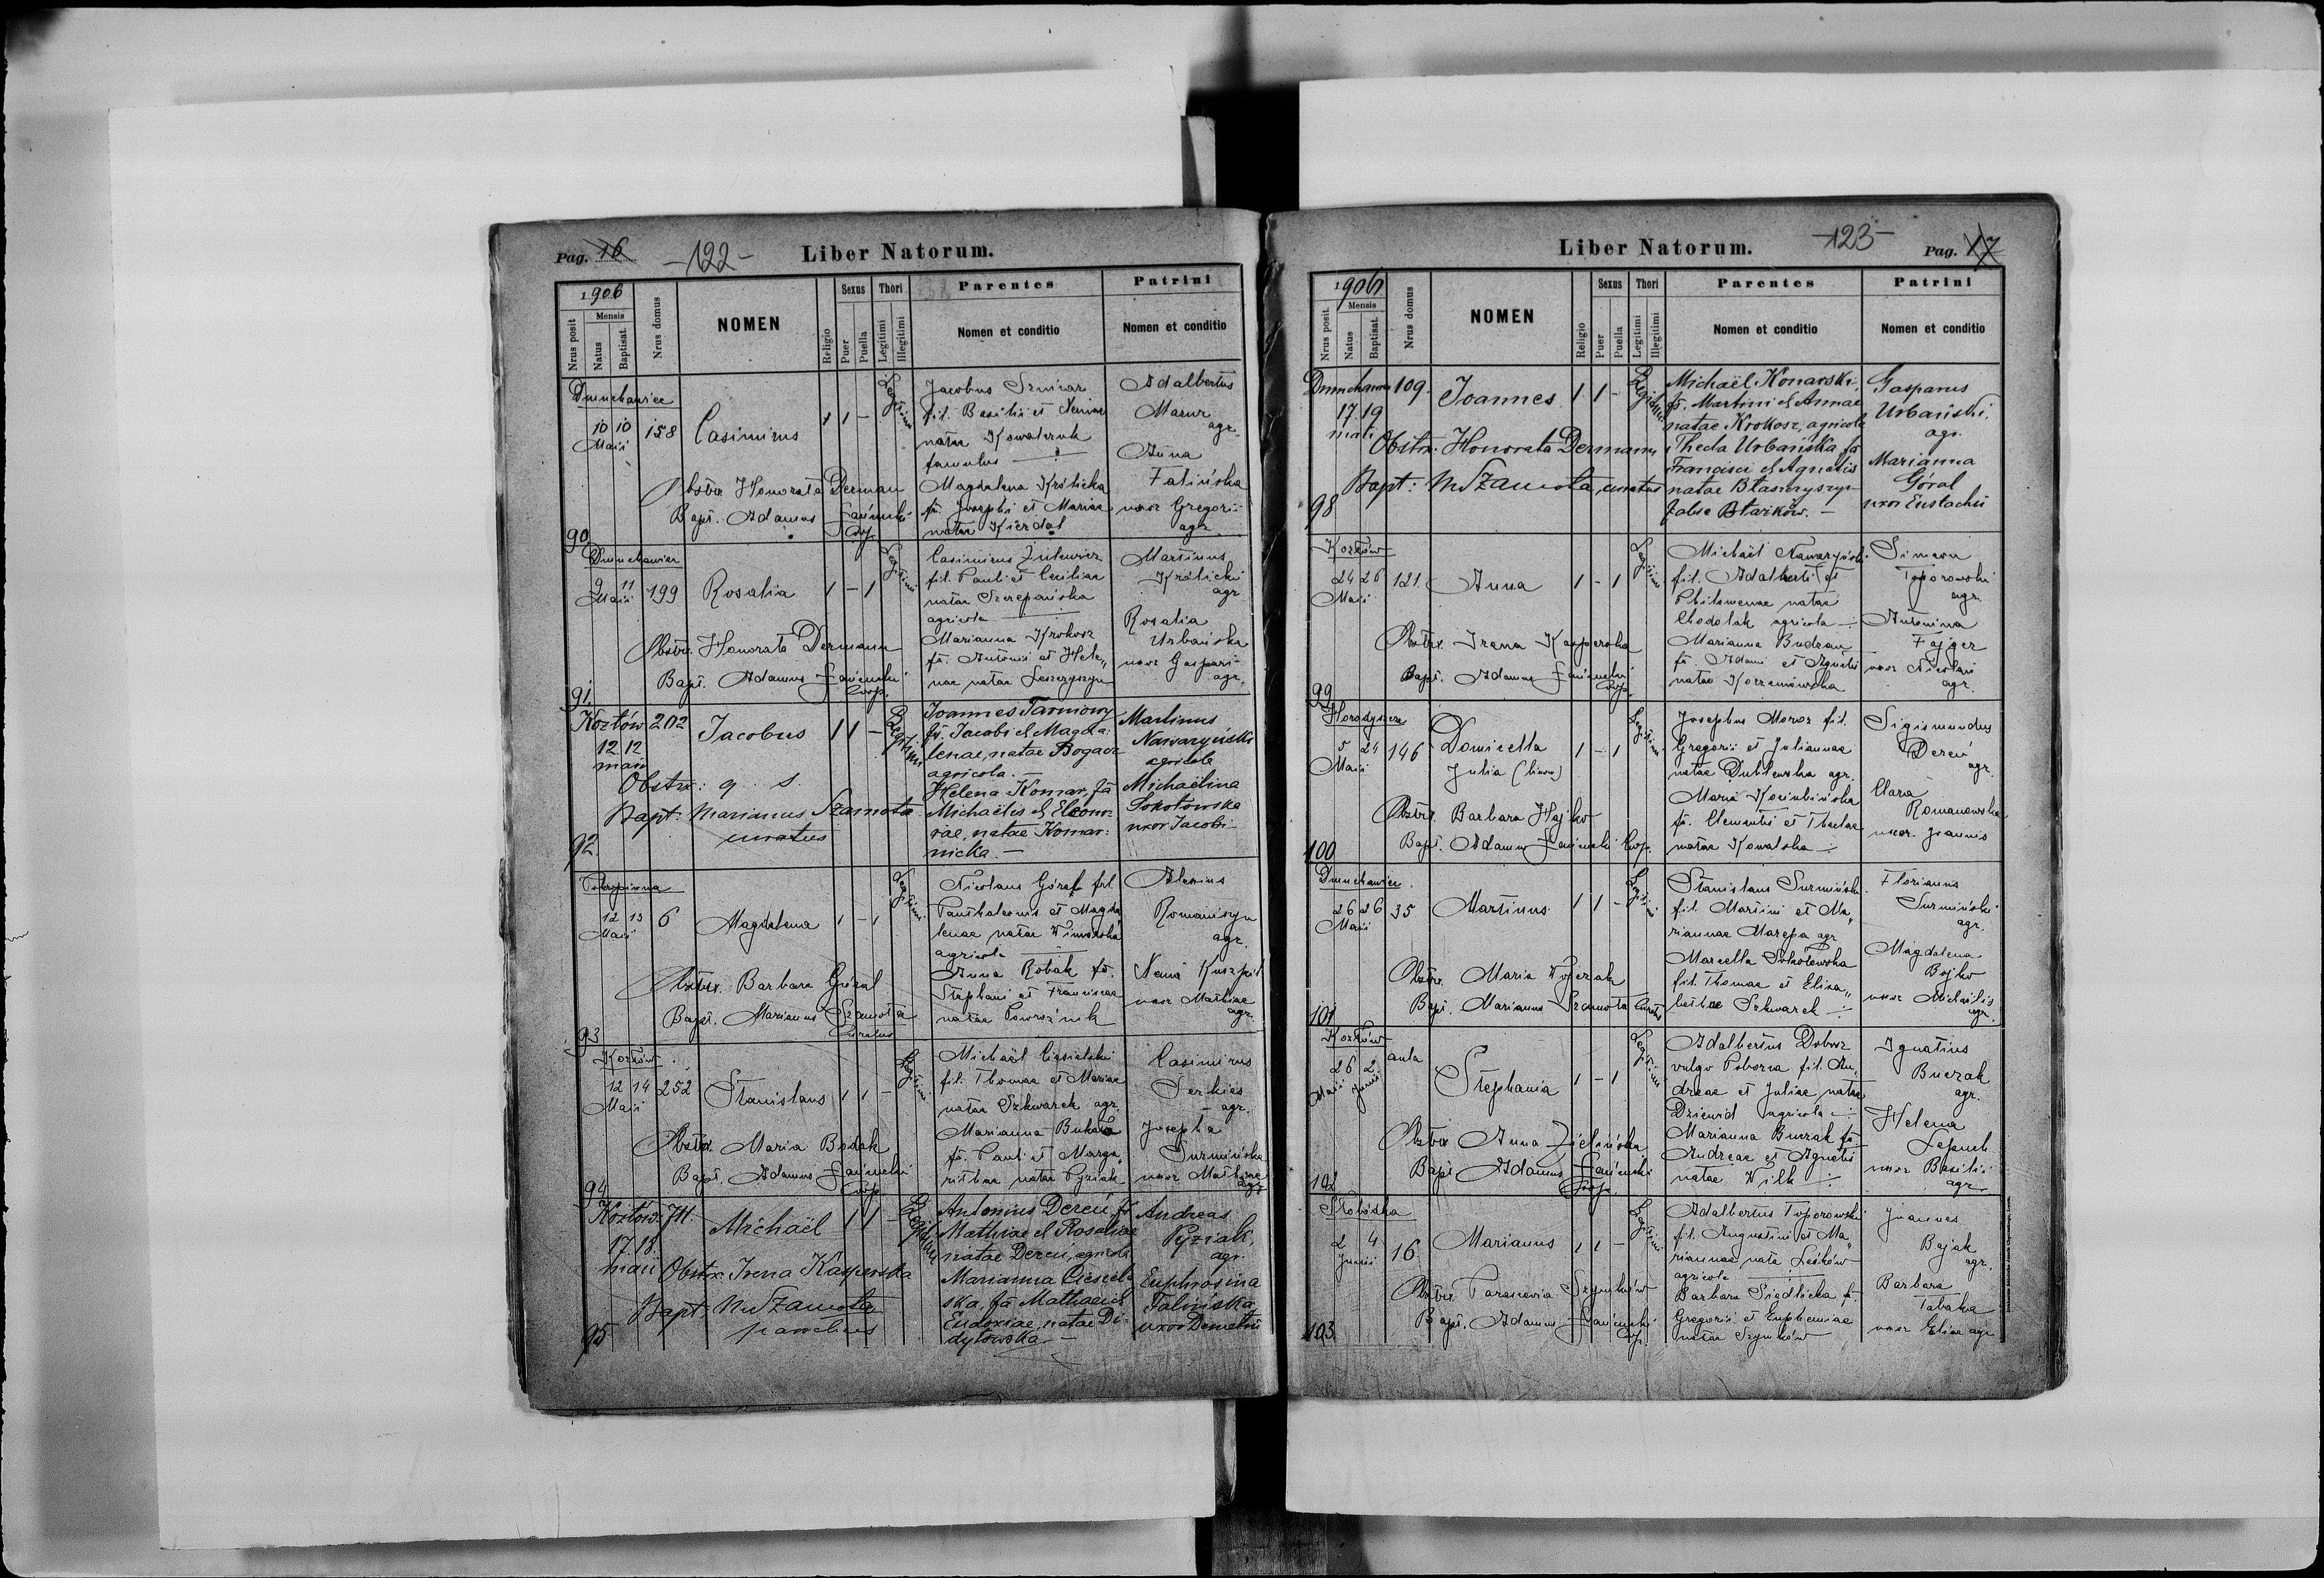 Pag. 16
-122-
Liber Natorum.
1906
Nrus posit
Mensis
Natus
Baptisat.
Nrus domus
NOMEN
Religio
Sexus
Puer
Puella
Thori
Legitimi
Illegitimi
Parentes
Nomen et conditio
Patrini
Nomen et conditio
Dmuchawiec
10 10
Maii
158
Casimirus
1 1 -
Legitimi
Jacobus
fil. Basilii et
natae Kowalczuk
famulus
Magdalena Królicka
fa. Josephi et Mariae
natae Kierdal
Adalbertus
Mazur
agr.
Anna
Falińska
uxor Gregorii
agr.
Obstrx Honorata Derman
Bapt. Adamus
Coop.
90
Dmuchawiec
9 11
Maii
199
Rosalia
1 - 1
Legitimi
Casimirus
fil. Pauli et Ceciliae
natae Szczepańska
agricola
Marianna Krokosz
fa. Antonii et Hele„
nae natae Leszczyszyn
Martinus
Królicki
agr
Rosalia
Urbańska
uxor Gaspari
agr.
Obstrx. Honorata Dermann
Bapt. Adamus
Coop.
91.
Kozłów
12 12
maii
202
Jacobus
1 1 -
Legitimi
Joannes Tarnowy
fs. Jacobi et Magda:
lenae, natae Bogacz
agricola. —
Helena Komar, fa
Michaëlis et Eleono-
rae, natae Komar:
nicka. —
Martinus
Nawaryński
agricola
Michaëlina
Sokołowska
uxor Jacobi
Obstrx: q. s.
Bapt: Marianus Szamota
curatus
92.
Pokropiwna
12 13
Maii
6
Magdalena
1 - 1
Legitimi
Nicolaus Góral fil.
Panthaleonis et Magda„
lenae natae
agricola
Anna Robak fa.
Stephani et Franciscae
natae Powroźnik
Alexius
Romaniszyn
agr.
uxor Mathiae
agr.
Obstrx. Barbara Góral
Bapt. Marianus Szamota
Curatus
93
Kozłów
12 14
Maii
252
Stanislaus
1 1 -
Legitimi
Michaël Ciesielski
fil. Thomae et Mariae
natae Szkwarek agr.
Marianna
fa. Pauli et Marga„
rithae natae Pyziak
Casimirus
Serkies
- agr.
Josepha
Surmińska
uxor Mathiae
agr.
Obstrx. Maria Bodak
Bapt. Adamus
Coop
94
Kozłów
17 18
maii
Michaël
1 1 -
Legitimi
Antonius Dereń, fs
Mathiae et Rosaliae
natae Dereń, agricola
Marianna Ciesiel-
ska, fa Mathaei et
Eudoxiae, natae Di-
dyłowska —
Andreas
Pyziak,
agr.
Euphrosina
Falińska,
uxor Demetrii
Obstrx. Irena Kasperska
Bapt: M Szamota
parochus
95
Liber Natorum.
-123-
Pag. 17
1906
Nrus posit.
Mensis
Natus
Baptisat.
Nrus domus
NOMEN
Religio
Sexus
Puer
Puella
Thori
Legitimi
Illegitimi
Parentes
Nomen et conditio
Patrini
Nomen et conditio
Dmuchawiec
17. 19
maii
109.
Joannes
1 1 -
Legitimi
Michaël Konarski,
fs. Martini et Annae
natae Krokosz, agricola
Thecla Urbańska fa
Francisci et Agnetis
natae Błaszczyszyn
false Błażków. —
Gasparus
Urbański.
agr.
Marianna
Góral
uxor Eustachii
Obstrx. Honorata Dermann
Bapt: M Szamota, curatus
98
Kozłów
24 26
Maii
121
Anna
1 - 1
Legitimi
Michaël Nawaryński
fil. Adalberti et
Philomenae natae
Chodolak agricola
Marianna
fa. Adami et Agnetis
natae
Simeon
Toporowski
agr.
Antonina
Fajger
uxor Nicolai
agr.
Obstrx. Irena Kasperska
Bapt. Adamus
Coop.
99
Horodyszcze
5 24
Maii
146
Domicella
Julia (bin.)
1 - 1
Legitimi
Josephus Moroz fil.
Gregorii et Juliannae
natae Dublewska agr.
Maria
fa. Clementis et Theclae
natae Kowalska
Sigismundus
Dereń
agr.
Clara
Romanowska
uxor Joannis
Obstrx. Barbara Hajko
Bapt. Adamus Coop.
100
Dmuchawiec
26 26
Maii
35
Martinus
1 1 -
Legitimi
Stanislaus Surmiński
fil. Martini et Ma„
riannae Marepa agr
Marcella Sokołowska
fil. Thomae et Elisa„
bethae Szkwarek
Florianus
Surmiński
agr.
Magdalena
Bojko
uxor Michaëlis
agr.
Obstrx. Maria
Bapt. Marianus Szamota Curatus
101
Kozłów
26 2
Maii Junii
aula
Stephania
1 - 1
Legitimi
Adalbertus Dobosz
vulgo fil. An„
dreae et Juliae natae
agricola
Marianna Buczak fa
Andreae et Agnetis
natae Wilk
Ignatius
Buczak
agr.
Helena
uxor Basilii
agr
Obstrx Anna Zielińska
Bapt Adamus
Coop.
102
Słobódka
2 4
Junii
16
Marianus
1 1 -
Legitimi
Adalbertus Toporowski
fil. Augustini et Ma„
riannae nata Leśków
agricola
Barbara Siedlicka f.
Gregorii et Euphemiae
natae Szymków
Joannes
Bajak
agr.
Barbara
Tabaka
uxor Eliae agr
Obstrx Parascevia Szymków
Bapt. Adamus
Coop.
103.